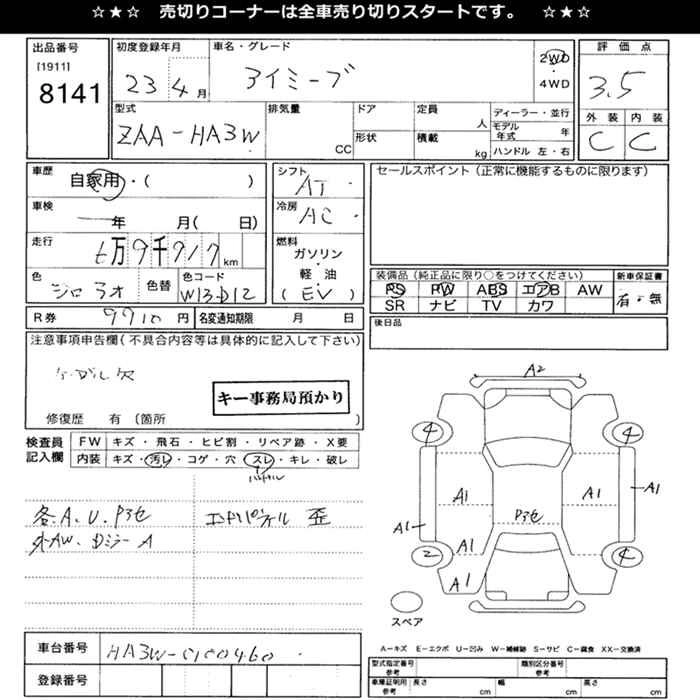 ☆★☆ 売切りコーナーは全車売り切りスタートです。 ☆★☆
出品番号
[1911]
8141
初度登録年月
23 4月
車名・グレード
アイミーブ
2WD
・
4WD
評価点
3.5
外装 内装
C C
型式
ZAA-HA3W
排気量
CC
ドア
形状
定員
人
積載
kg
ディーラー・並行
モデル年式 年
ハンドル 左・右
車歴
自家用・( )
車検
年 月( 日)
走行
万9千917km
色
シロ アオ
色替
色コード
W13・D12
シフト
AT
冷房
AC
燃料
ガソリン
・
軽油
(EV)
セールスポイント(正常に機能するものに限ります)
装備品(純正品に限り○をつけてください)
PS PW ABS エアB AW
SR ナビ TV カワ
新車保証書
有・無
後日品
R券 9910円
名変通知期限 月 日
注意事項申告欄(不具合内容等は具体的に記入して下さい)
ケーブル欠
キー事務局預かり
修復歴 有(箇所 )
検査員
記入欄
FW キズ・飛石・ヒビ割・リペア跡・X要
内装 キズ・汚レ・コゲ・穴・スレ・キレ・破レ
ハンドル
各A、U、P3色
外AW、Dミラー A
エンドパネル 歪
A2
4 4
A1 A1 A1
P3色
A1
2 A1 4
A1
スペア
車台番号
HA3W-0100460
登録番号
A-キズ E-エクボ U-凹み W-補修跡 S-サビ C-腐食 XX-交換済
型式指定番号
参考
類別区分番号
参考
車庫証明用
参考
長さ cm 幅 cm 高さ cm